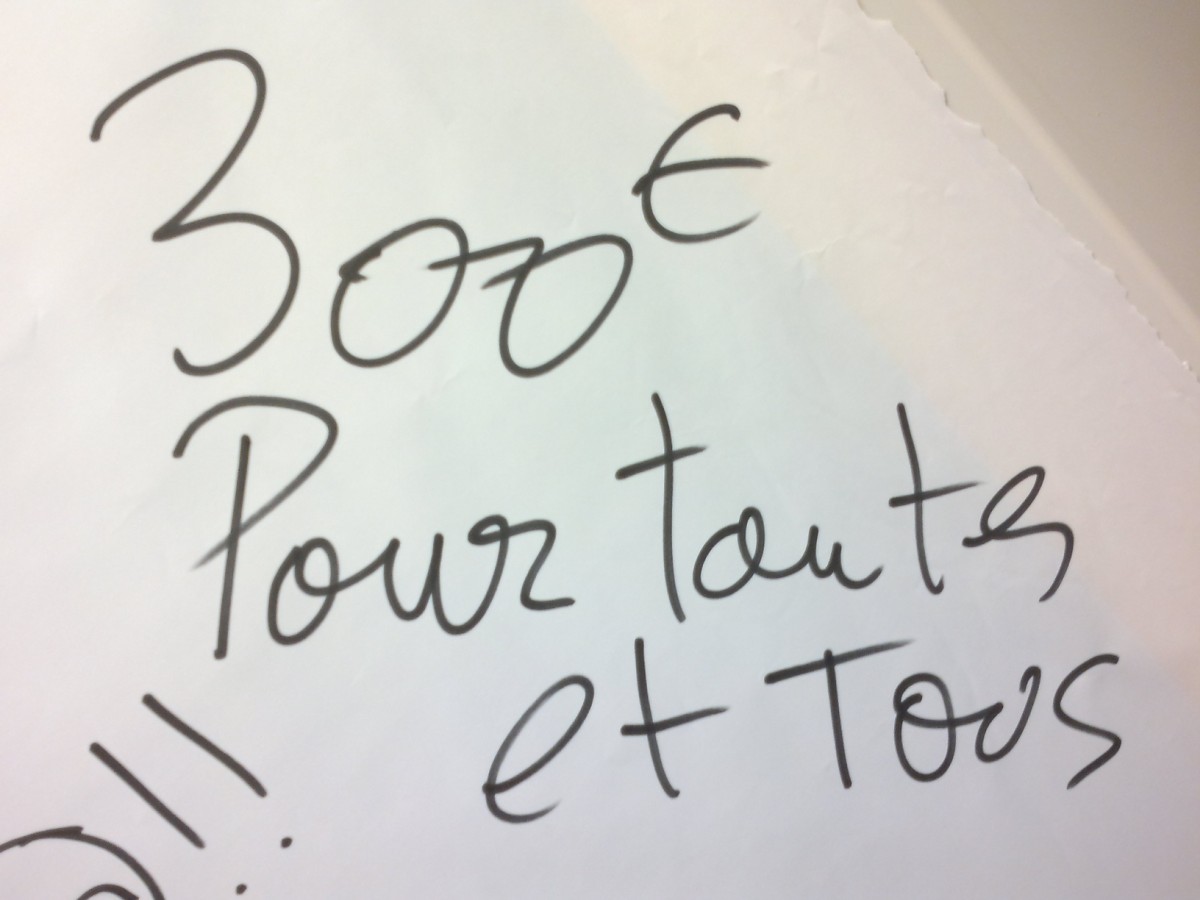 300€
Pour toutes
et Tous
!!